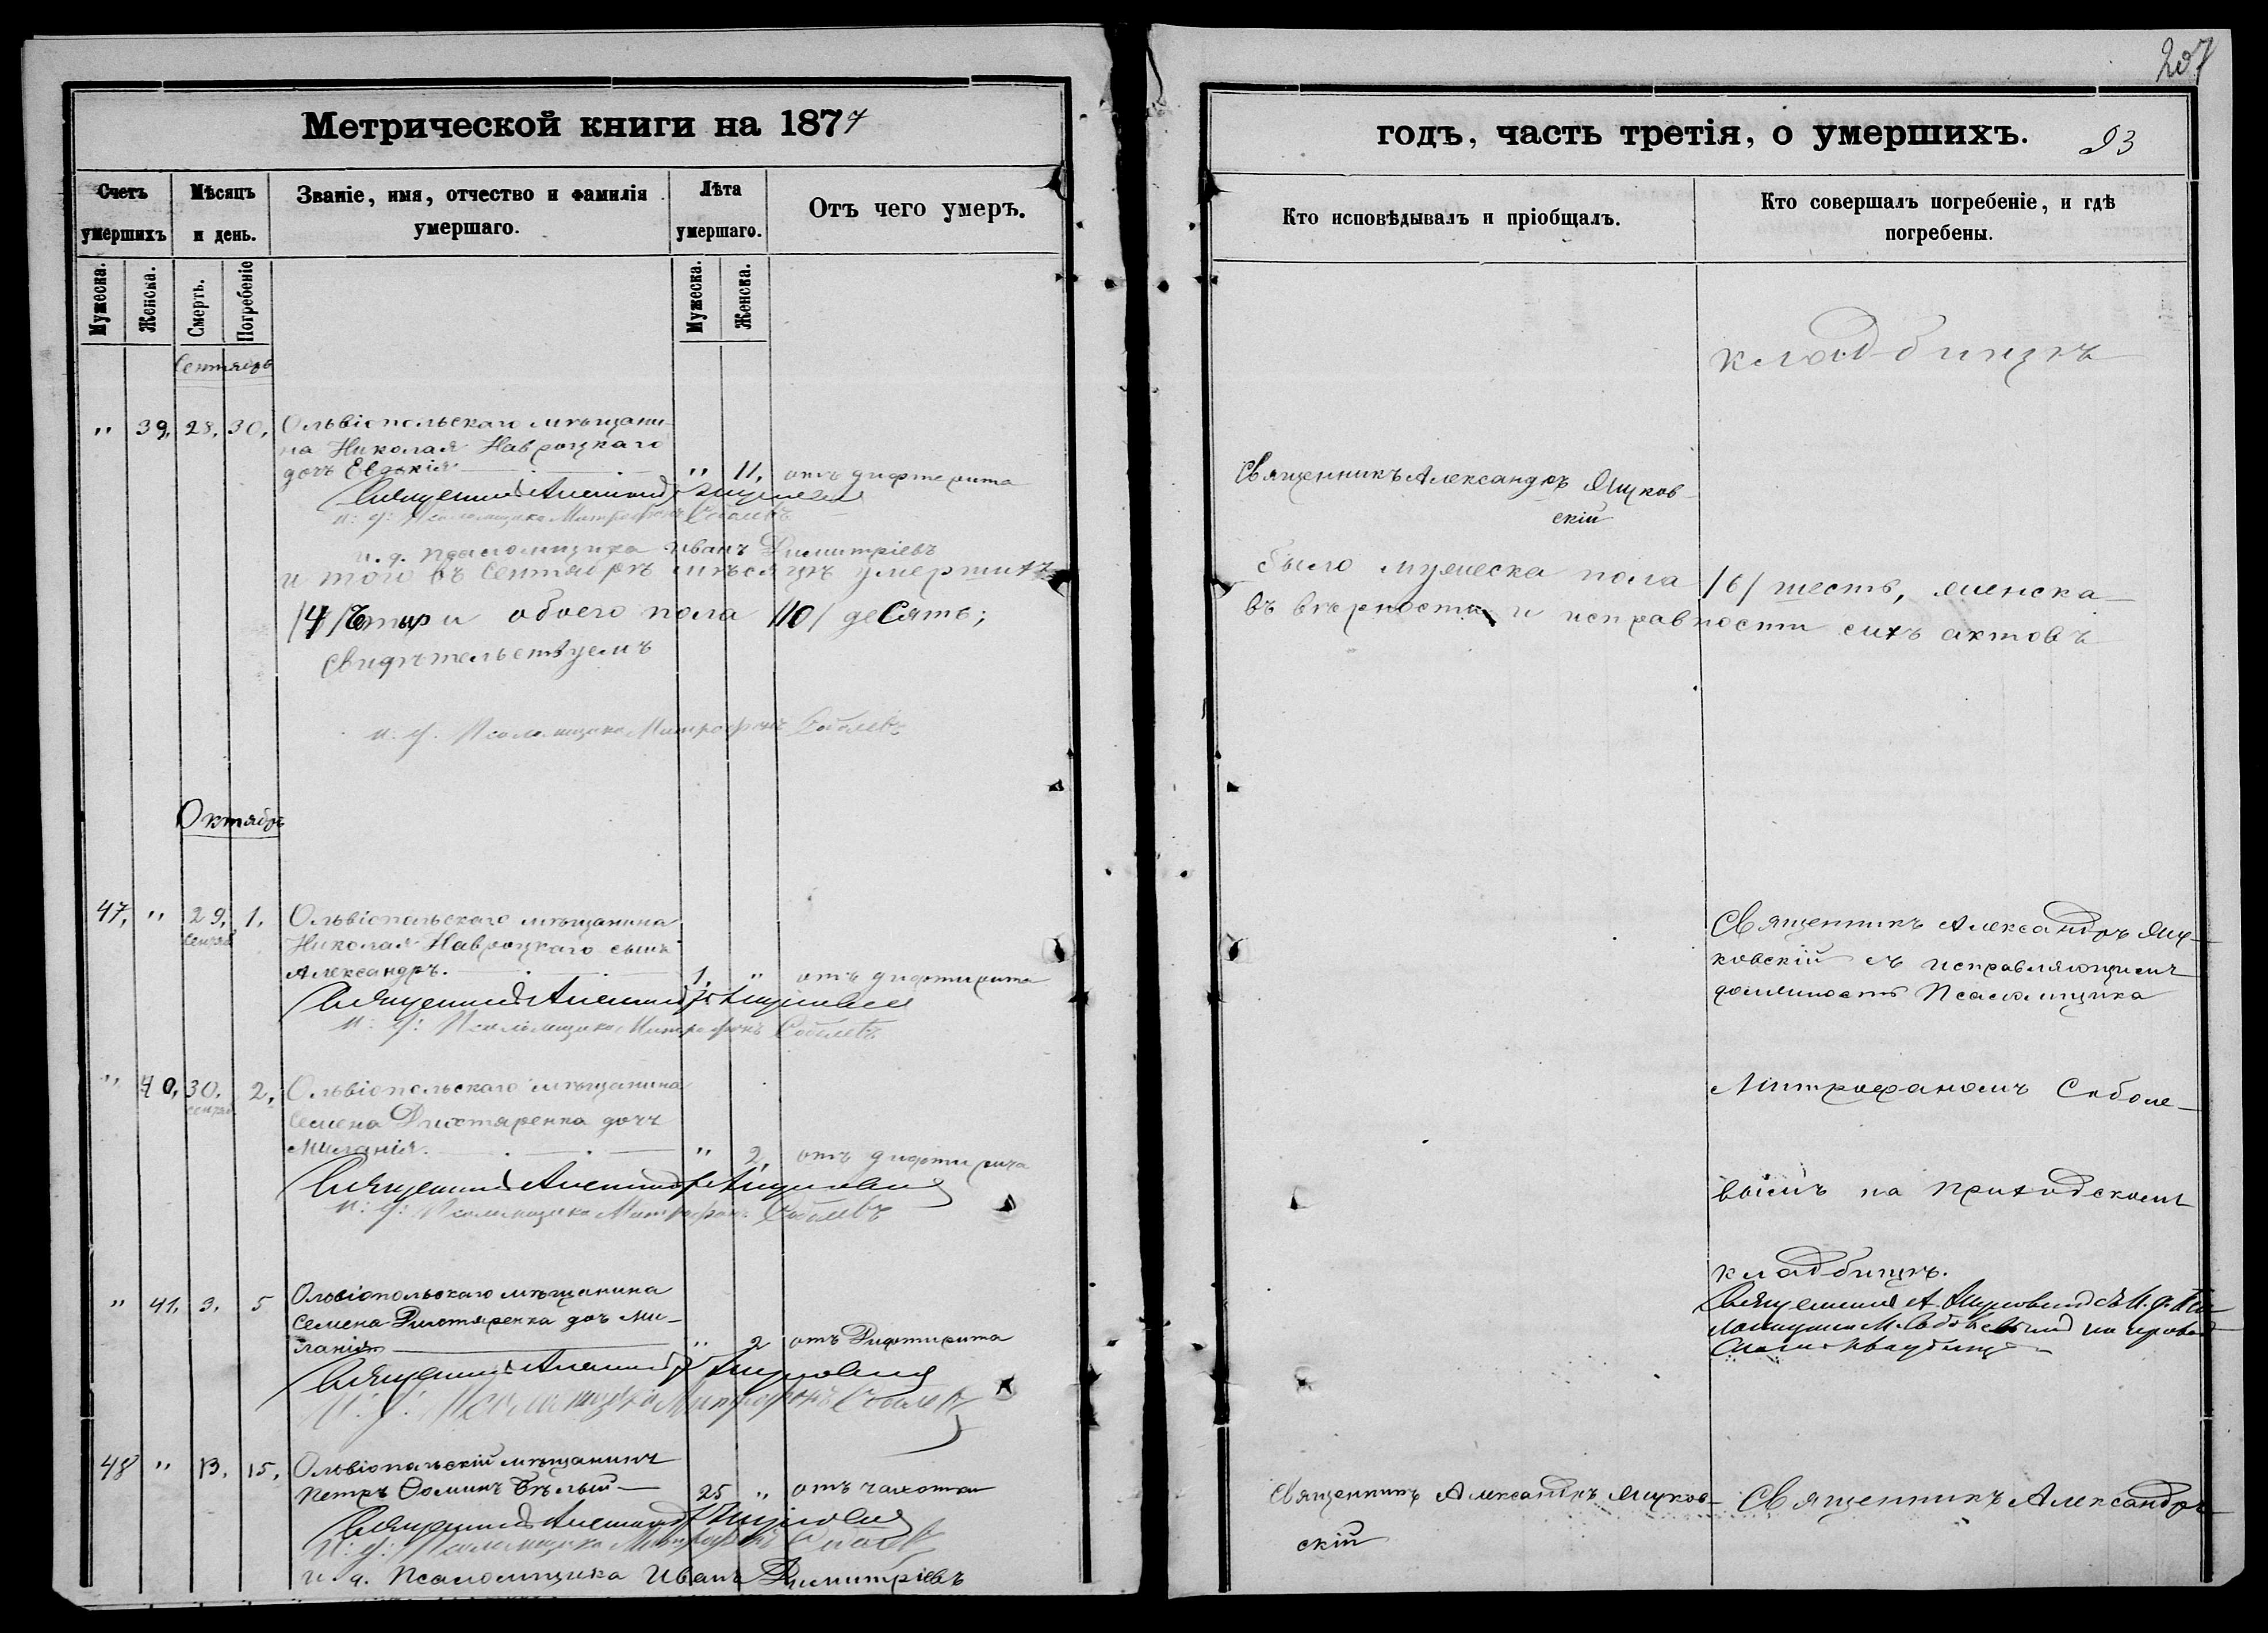 207
Метрической книги на 1877
годъ, часть третія, о умершихъ.
93
Счетъ умершихъ
Мѣсяцъ и день.
Званіе, имя, отчество и фамилія умершаго.
Лѣта умершаго.
Отъ чего умеръ.
Кто исповѣдывалъ и пріобщалъ.
Кто совершалъ погребеніе, и гдѣ погребены.
Мужеска.
Женска.
Смерть.
Погребеніе
Мужеска.
Женска.
Сентябрь
кладбищѣ
" 39, 28, 30, Ольвіопольскаго мѣщани-
на Николая Навроцкаго
дочь Евдокія " 11, отъ дифтерита
Священникъ Александръ Яцков-
скій
и. д. Псаломщика Митрофанъ Соболевъ
и. д. псаломщика Иванъ Димитріевъ
и того въ Сентябрѣ мѣсяцѣ умершихъ
было мужеска пола /6/ шесть, женска
/4/ четыри обоего пола /10/ десять;
въ вѣрности и исправности сихъ актовъ
свидѣтельствуемъ
и. д. Псаломщика Митрофанъ Соболевъ
Октябрь
47, " 29, 1. Ольвіопольскаго мѣщанина
Сентяб
Николая Навроцкаго сынъ
Александръ. 1. " отъ дифтирита
Священникъ Александръ Яцковскій
и. д. Псаломщика Митрофанъ Соболевъ
Священникъ Александръ Яц-
ковскій съ исправляющимъ
должность Псаломщика
" 40, 30. 2, Ольвіопольскаго мѣщанина
сентяб
Семена Дихтяренка дочь
Миланія. " 2, отъ дифтирита
Священникъ Александръ Яцковскій
и. д. Псаломщика Митрофанъ Соболевъ
Митрофаномъ Соболе-
вымъ на приходскомъ
кладбищѣ.
" 41. 3. 5 Ольвіопольскаго мѣщанина
Семена Дихтяренка дочь Ми-
ланія " 2 отъ Дифтирита
Священникъ Александръ Яцковскій
и. д. Псаломщика Митрофанъ Соболевъ
Священникъ А. Яцковскій съ И. д. Пса-
ломщика М. Соболевымъ на приход
48 " 13. 15. Ольвіопольскій мѣщанинъ
Петръ Ѳоминъ Бѣлый 25 " отъ чахотки
Священникъ Александръ Яцковскій
и. д. Псаломщика Митрофанъ Соболевъ
и. д. Псаломщика Иванъ Димитріевъ
Священникъ Александръ Яцков-
скій
Священникъ Александръ